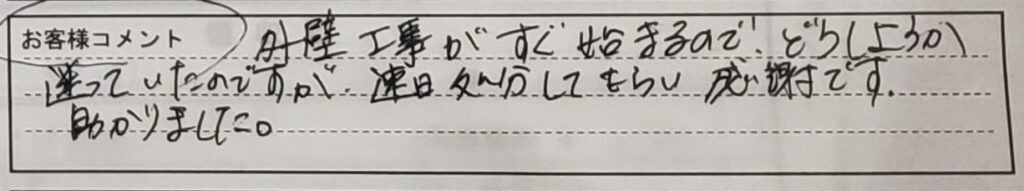 お客様コメント 外壁工事がすぐ始まるので、どうしようか
迷っていたのですが、連日処分してもらい感謝です。
助かりました。